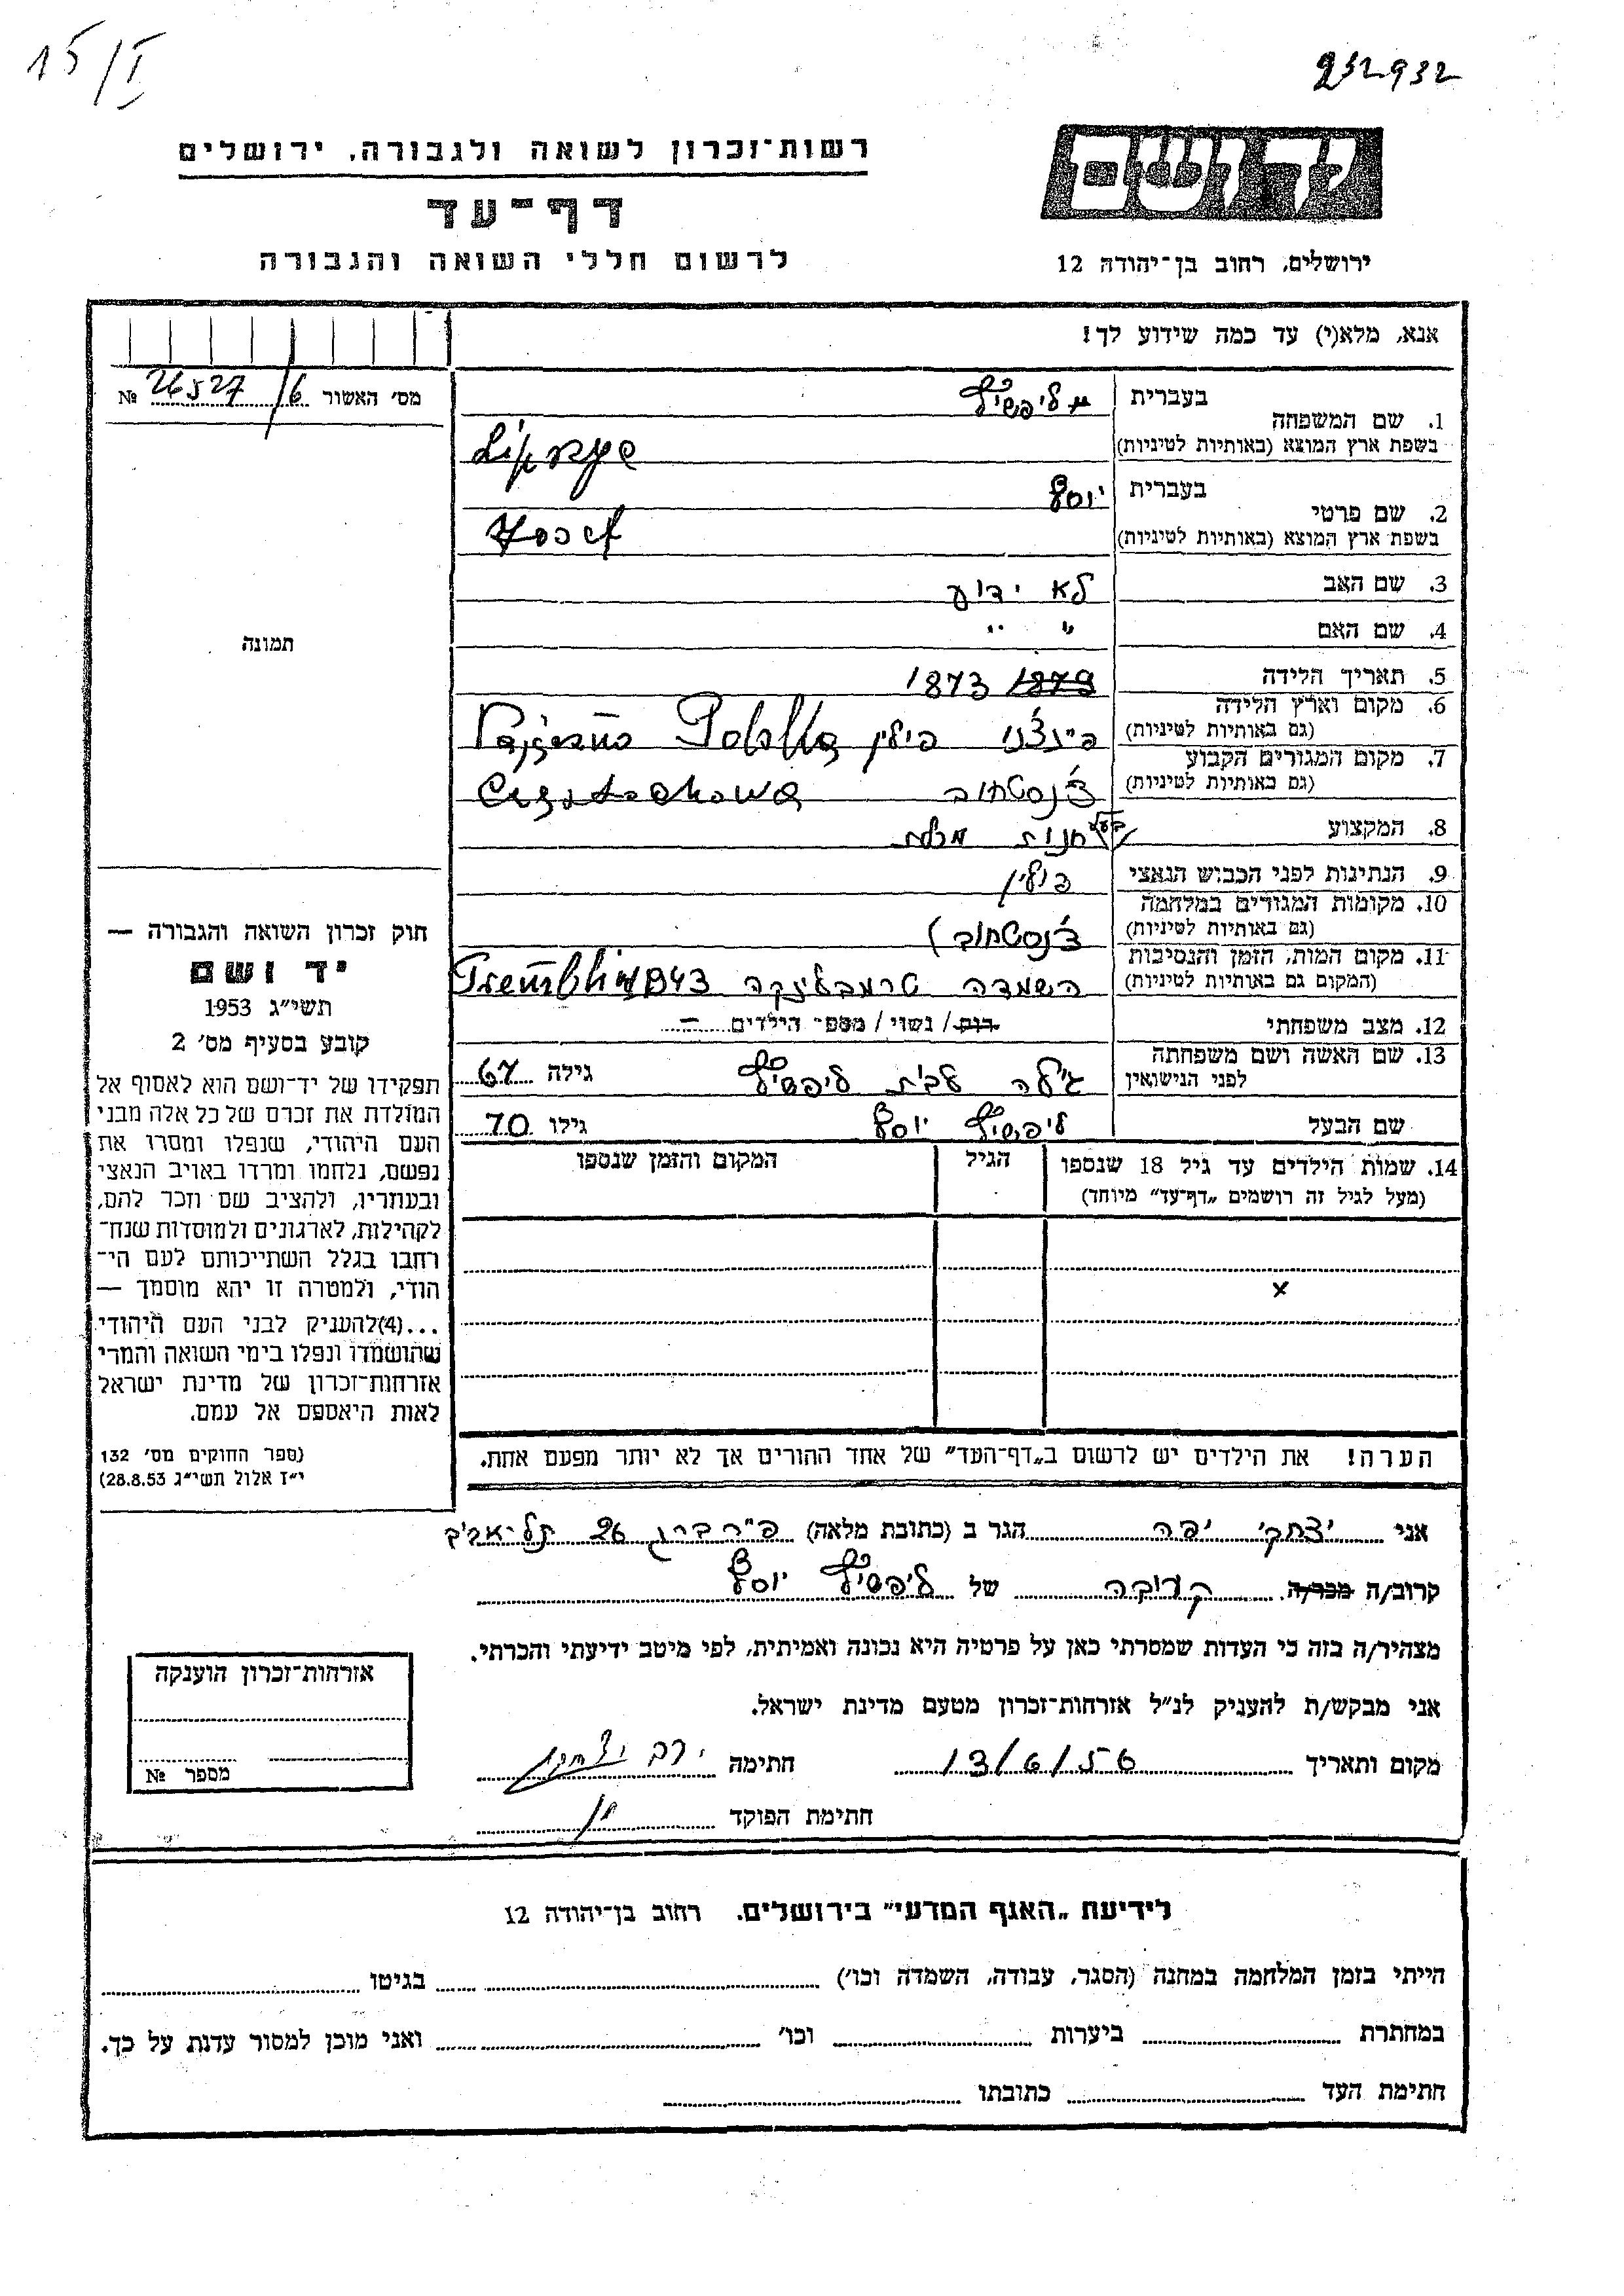 15/I
232932
יד ושם
ירושלים, רחוב בן־יהודה 12
רשות־זכרון לשואה ולגבורה, ירושלים
דף־עד
לרשום חללי השואה והגבורה
אנא, מלא(י) עד כמה שידוע לך!
מס׳ האשור 26527/6 №
תמונה
1. שם המשפחה
בעברית
בשפת ארץ המוצא (באותיות לטיניות)
2. שם פרטי
בעברית יוסף
בשפת ארץ המוצא (באותיות לטיניות) Josef
3. שם האב לא ידוע
4. שם האם " "
5. תאריך הלידה 1879 1873
6. מקום וארץ הלידה
(גם באותיות לטיניות) פולין
7. מקום המגורים הקבוע
(גם באותיות לטיניות) צ'נסטחוב
8. המקצוע בעל חנות מכלת
9. הנתינות לפני הכבוש הנאצי פולין
10. מקומות המגורים במלחמה
(גם באותיות לטיניות) צ'נסטחוב
11. מקום המות, הזמן והנסיבות
(המקום גם באותיות לטיניות) השמדה טרמבלינקה 1943
12. מצב משפחתי רוק / נשוי / מספ־ הילדים –
13. שם האשה ושם משפחתה
לפני הנישואין לבית גילה 67
שם הבעל יוסף גילו 70
14. שמות הילדים עד גיל 18 שנספו
(מעל לגיל זה רושמים „דף־עד״ מיוחד)
הגיל
המקום והזמן שנספו
x
הערה! את הילדים יש לרשום ב„דף־העד״ של אחד ההורים אך לא יותר מפעם אחת.
חוק זכרון השואה והגבורה —
יד ושם
תשי״ג 1953
קובע בסעיף מס׳ 2
תפקידו של יד־ושם הוא לאסוף אל
המולדת את זכרם של כל אלה מבני
העם היהודי, שנפלו ומסרו את
נפשם, נלחמו ומרדו באויב הנאצי
ובעוזריו, ולהציב שם וזכר להם,
לקהילות, לארגונים ולמוסדות שנח־
רבו בגלל השתייכותם לעם הי־
הודי, ולמטרה זו יהא מוסמך —
...(4) להעניק לבני העם היהודי
שהושמדו ונפלו בימי השואה והמרי
אזרחות־זכרון של מדינת ישראל
לאות היאספם אל עמם.
(ספר החוקים מס׳ 132
י״ז אלול תשי״ג 28.8.53)
אני יצחקי יפה הגר ב (כתובת מלאה) 26 תל־אביב
קרוב/ה מכר/ה קרובה של יוסף
מצהיר/ה בזה כי העדות שמסרתי כאן על פרטיה היא נכונה ואמיתית, לפי מיטב ידיעתי והכרתי.
אני מבקש/ת להעניק לנ״ל אזרחות־זכרון מטעם מדינת ישראל.
מקום ותאריך 13/6/56 חתימה
חתימת הפוקד
אזרחות־זכרון הוענקה
מספר №
לידיעת „האגף המדעי״ בירושלים, רחוב בן־יהודה 12
הייתי בזמן המלחמה במחנה (הסגר, עבודה, השמדה וכו׳) בגיטו
במחתרת ביערות וכו׳ ואני מוכן למסור עדות על כך.
חתימת העד כתובתו